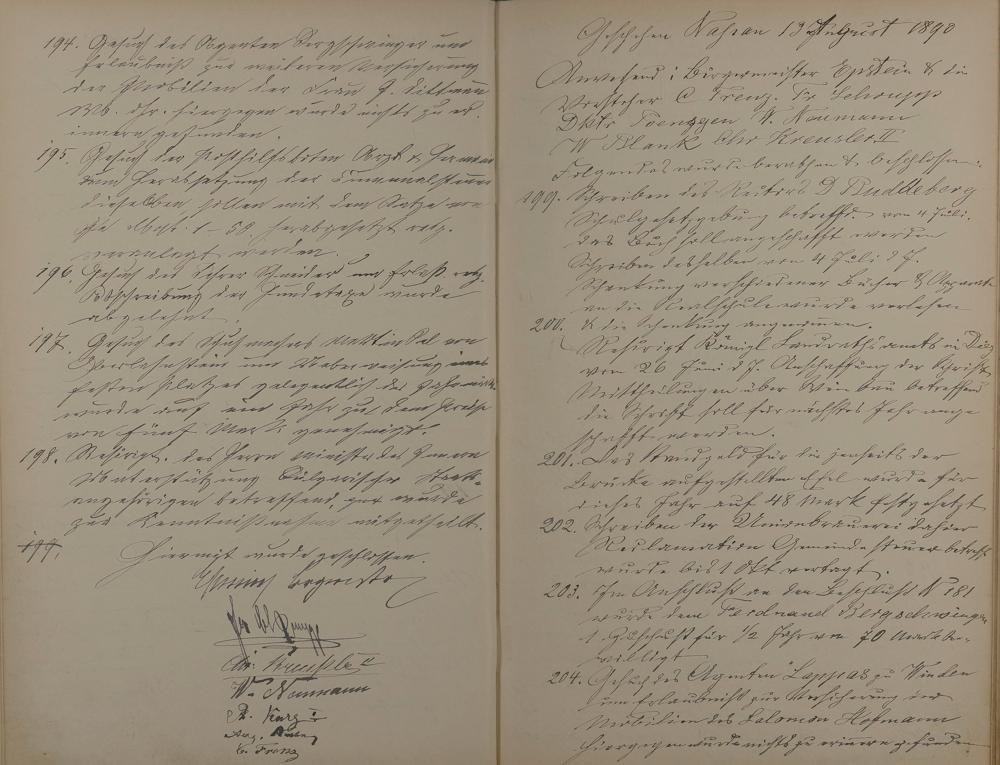 194. Gesuch des Agenten Bergschwinger um
Erlaubniß zur weiteren Versicherung
der Mobilien der Frau G. Dittmann
Wb. dhr. hiergegen wurde nichts zu er-
innern gefunden.
195. Gesuch der Posthilfsboten Arzt &
um Herabsetzung der Communalsteuer
dieselben sollen mit dem Satze von
herabgesetzt resp.
veranlagt werden.
196. Gesuch des Lehrer Schneider um Erlaß resp.
Abschreibung der Hundetaxe wurde
abgelehnt.
197. Gesuch des Schuhmachers von
Oberlahnstein um Ueberweisung eines
festen Platzes gelegentlich der Jahrmärkte
wurde auf ein Jahr zu dem Preise
von fünf Mark genehmigt.
198. Rescript des Herrn Minister des Innern
Unterstützung Bulgarischer Staats-
angehörigen betreffend, wurde
zur Kenntnißnahme mitgetheilt.
199.
Hiermit wurde geschlossen.
Epstein Bürgermstr
Chr. Kreusler II
W. Naumann
Kurz I
C. Trenz
Geschehen Nassau 13 August 1890
Anwesend: Bürgermeister Epstein & die
Vorsteher C Trenz. Fr Schrupp
Dktr Poensgen W. Naumann
W Blank Chr Kreusler II
Folgendes wurde berathen & beschlossen:
199. Schreiben des Rectors D Buddeberg
Schulgesetzgebung betreffd. von 4 Juli.
das Buch soll angeschafft werden
Schreiben desselben von 4 Juli d J.
Schenkung verschiedener Bücher & Apparate
an die Realschule wurde verlesen
200. & die Schenkung angenommen.
Rescript Königl Landrathsamts in Diez
vom 26 Juni d J. Anschaffung der Schrift
Mittheilungen über Weinbau betreffend
die Schrift soll für nächstes Jahr ange-
schafft werden.
201. Das Standgeld für die jenseits der
Brücke aufgestellten wurde für
dieses Jahr auf 48 Mark festgesetzt
202. Schreiben der Unionbrauerei dahier
Reclamation Gemeindesteuer betreff.
wurde bis 1 Okt vertagt.
203. Im Anschluß an den Beschluß N 181
wurde dem Ferdinand Bergschwinger
1. Zuschuß für 1/2 Jahr von 70 Mark be-
willigt
204. Gesuch des Agenten Lappas zu Winden
um Erlaubniß zur Versicherung der
Mobilien des Salomon Hofmann
hiergegen wurde nichts zu erinnern gefunden